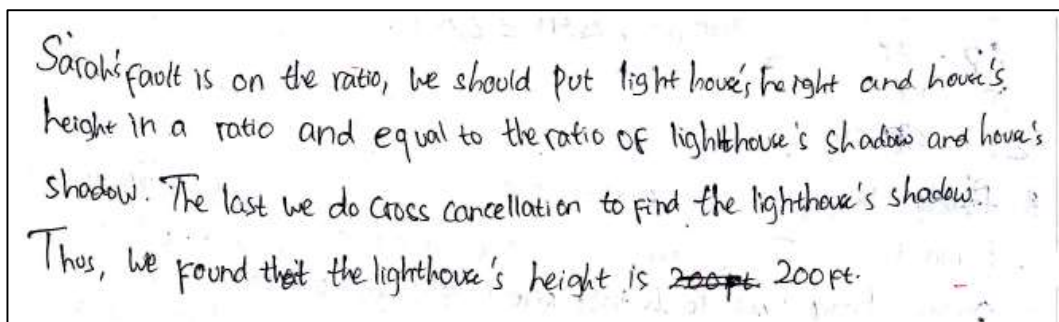 Sarah's fault is on the ratio, we should put light house's height and house's
height in a ratio and equal to the ratio of lighthouse's shadow and house's
shadow. The last we do cross cancellation to find the lighthouse's shadow.
Thus, we found that the lighthouse's height is 200ft. 200ft.